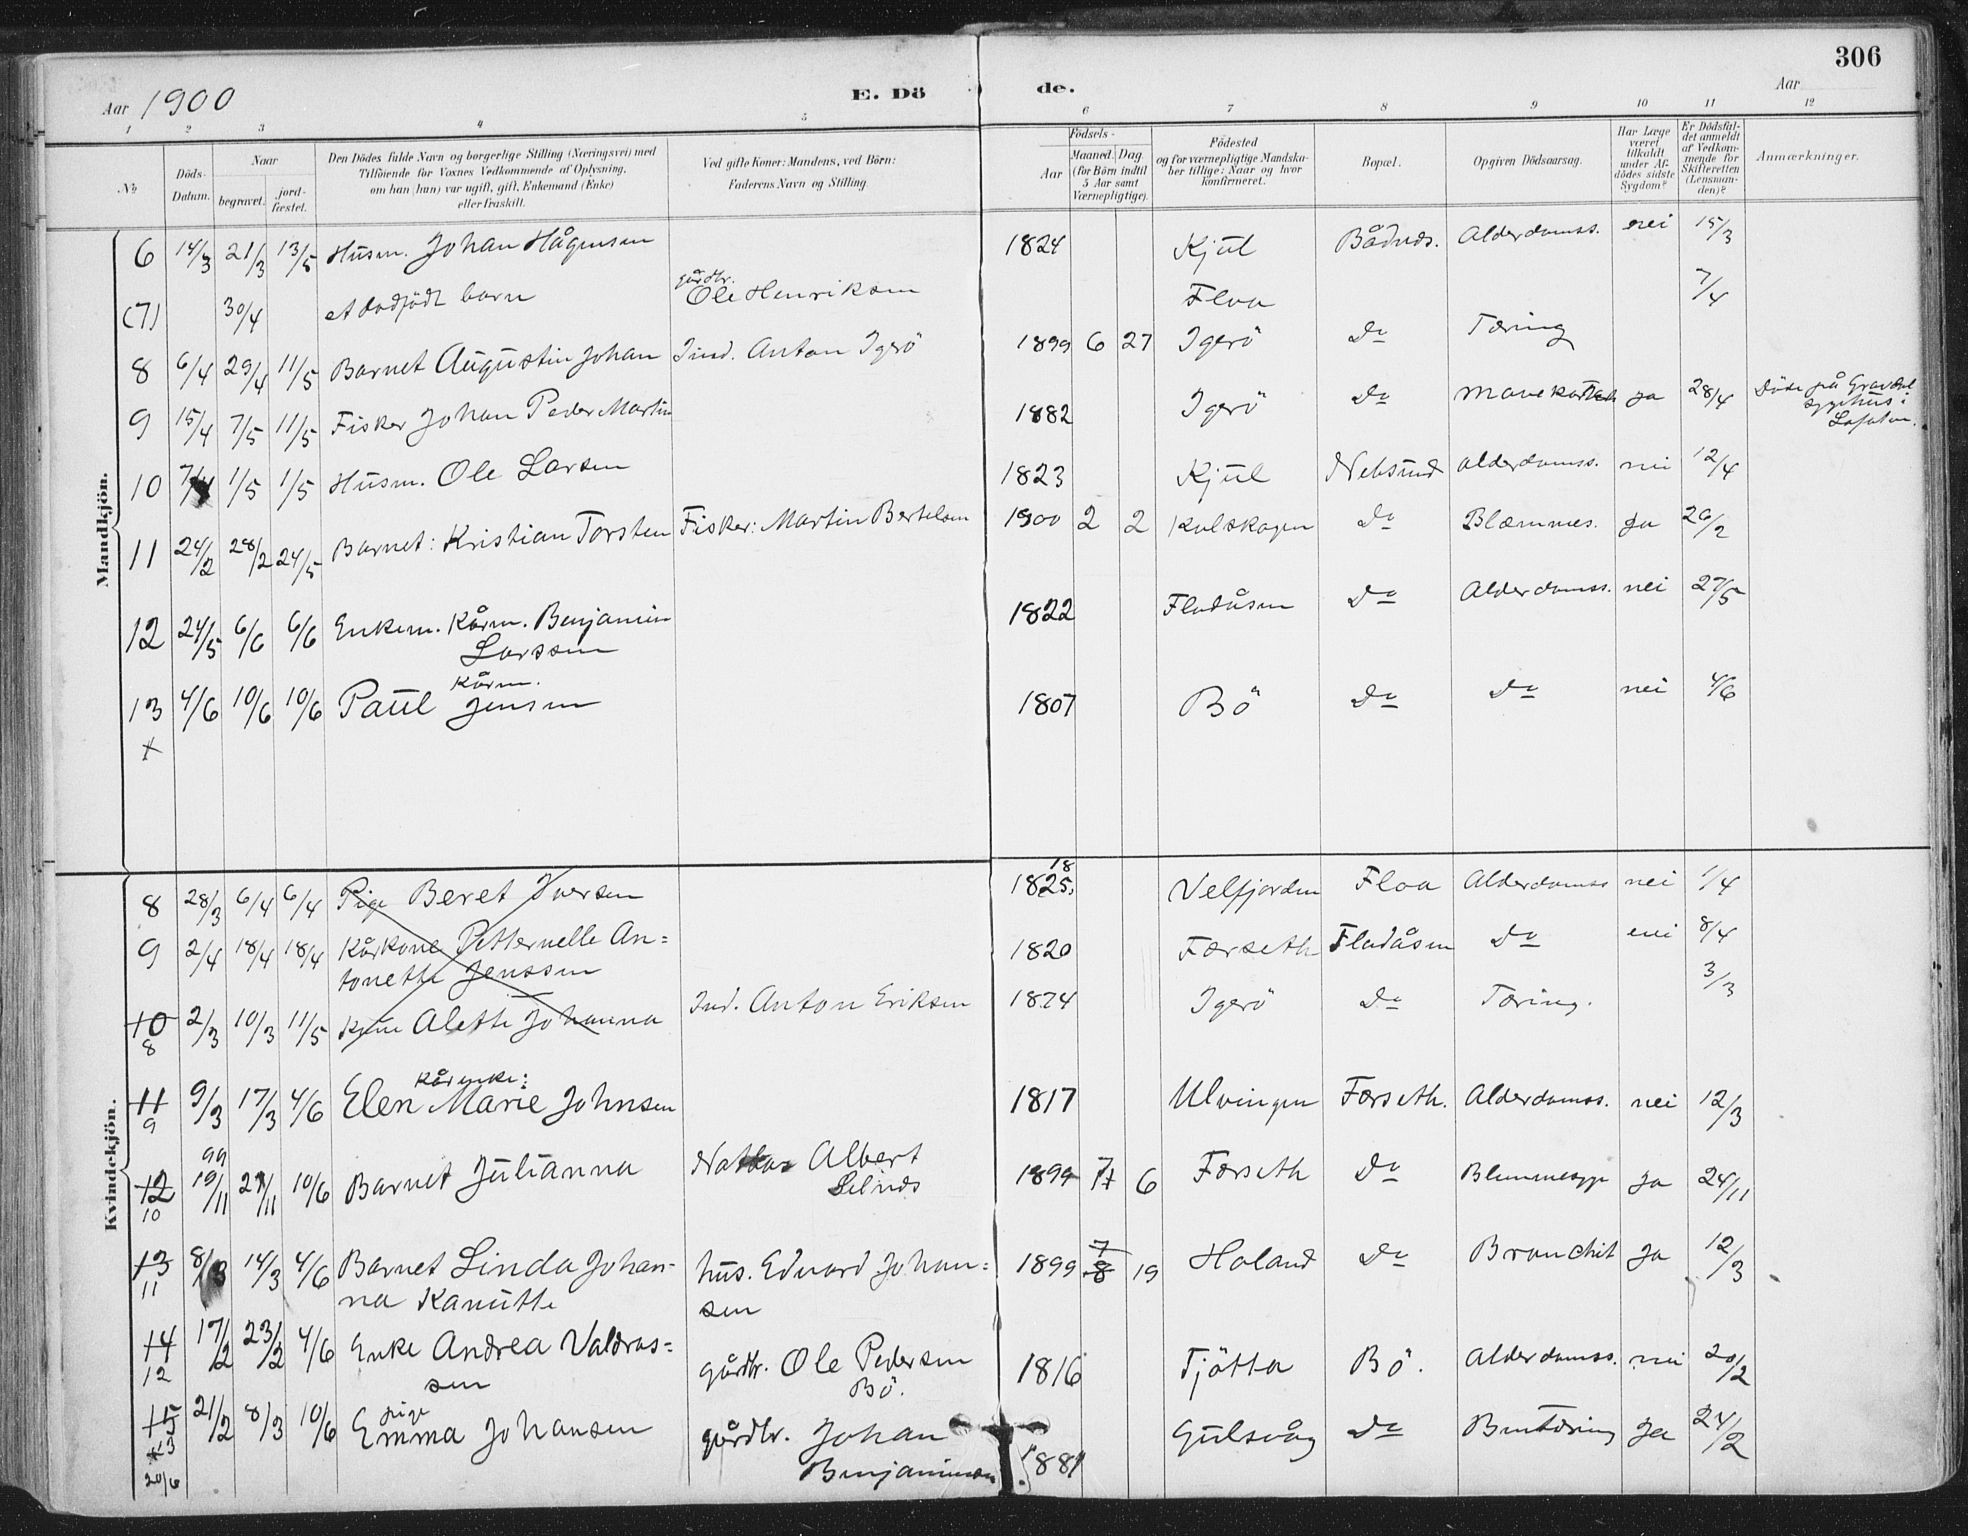 306
Aar 1900
E. Dö
de.
Aar
1 2 3 4 5 6 7 8 9 10 11 12
No
Döds-
Datum.
Naar
begravet.
jord-
fæstet.
Den Dödes fulde Navn og borgerlige Stilling (Næringsvei) med
Tilföiende for Voxnes Vedkommende af Oplysning,
om han (hun) var ugift, gift, Enkemand (Enke)
eller fraskilt.
Ved gifte Koner: Mandens, ved Börn:
Faderens Navn og Stilling.
Födsels-
Aar
Maaned. Dag.
(for Börn indtil
5 Aar samt
Værnepligtige).
Födested
og for værnepligtige Mandska-
ber tillige: Naar og hvor
konfirmeret.
Bopæl.
Opgiven Dödsaarsag.
Har Læge
været
tilkaldt
under Af-
dödes sidste
Sygdom?
Er Dödsfal-
det anmeldt
af Vedkom-
mende for
Skifteretten
(Lensman-
den)?
Anmærkninger.
Mandkjön.
6 14/3 21/3 13/5 Husm. Johan Hågensen 1824 Kjul Bådnds. Alderdomss. nei 15/3
(7) 30/4 et dødfødt barn gårdbr. Ole Henriksen Floa 7/4
8 6/4 29/4 11/5 Barnet Augustin Johan Ind. Anton Igerö 1899 6 27 Igerö Do Tæring
9 15/4 7/5 11/5 Fisker Johan Peder Martin 1882 Igerö Do Mavekatarh ja 28/4 Döde på Gravdal
sygehus i
Lofoten.
10 7/4 1/5 1/5 Husm. Ole Larsen 1823 Kjul Nebsund alderdomss. nei 12/4
11 24/2 28/2 24/5 Barnet: Kristian Torsten Fisker: Martin Bertelsen 1900 2 2 Kulskagen Do Blæmmes. ja 26/2
12 24/5 6/6 6/6 Enkem. Kårm. Benjamin
Larssen 1822 Flodåsen Do Alderdomss. nei 27/5
13 4/6 10/6 10/6 Paul Kårm. Jensen 1807 Bö Do Do nei 4/6
x
Kvindekjön.
8 28/3 6/4 6/4 Pige Beret Iversen 1825 18 Velfjorden Floa Alderdomss nei 1/4
9 2/4 18/4 18/4 Kårkone Petternelle An=
tonette Jenssen 1820 Forseth Flodåsen Do nei 8/4
10 8 2/3 10/3 11/5 Alette Johanna Ind. Anton Eriksen 1874 Igerö Do Tæring. 3/3
11 9 9/3 17/3 4/6 Kårenke: Elen Marie Johnsen 1817 Ulvingen Forseth. Alderdomss. nei 12/3
12 10 99 19/11 27/11 10/6 Barnet Julianna Albert 1899 7 6 Forseth Do ja 24/11
13 11 8/3 14/3 4/6 Barnet Linda Johan-
na Kanutte hus. Edvard Johan=
sen 1899 7 8 19 Holand Do Bronchit ja 12/3
14 12 17/2 23/2 4/6 Enke Andrea Valdras=
sen gårdbr. Ole Pedersen
Bö. 1816 Tjötta Bö. Alderdomss. nei 20/2
15 13 21/2 8/3 10/6 pige Emma Johansen gårdbr. Johan
Benjaminsen 1881 Gulsvåg Do Brnstæring ja 24/2
20/6